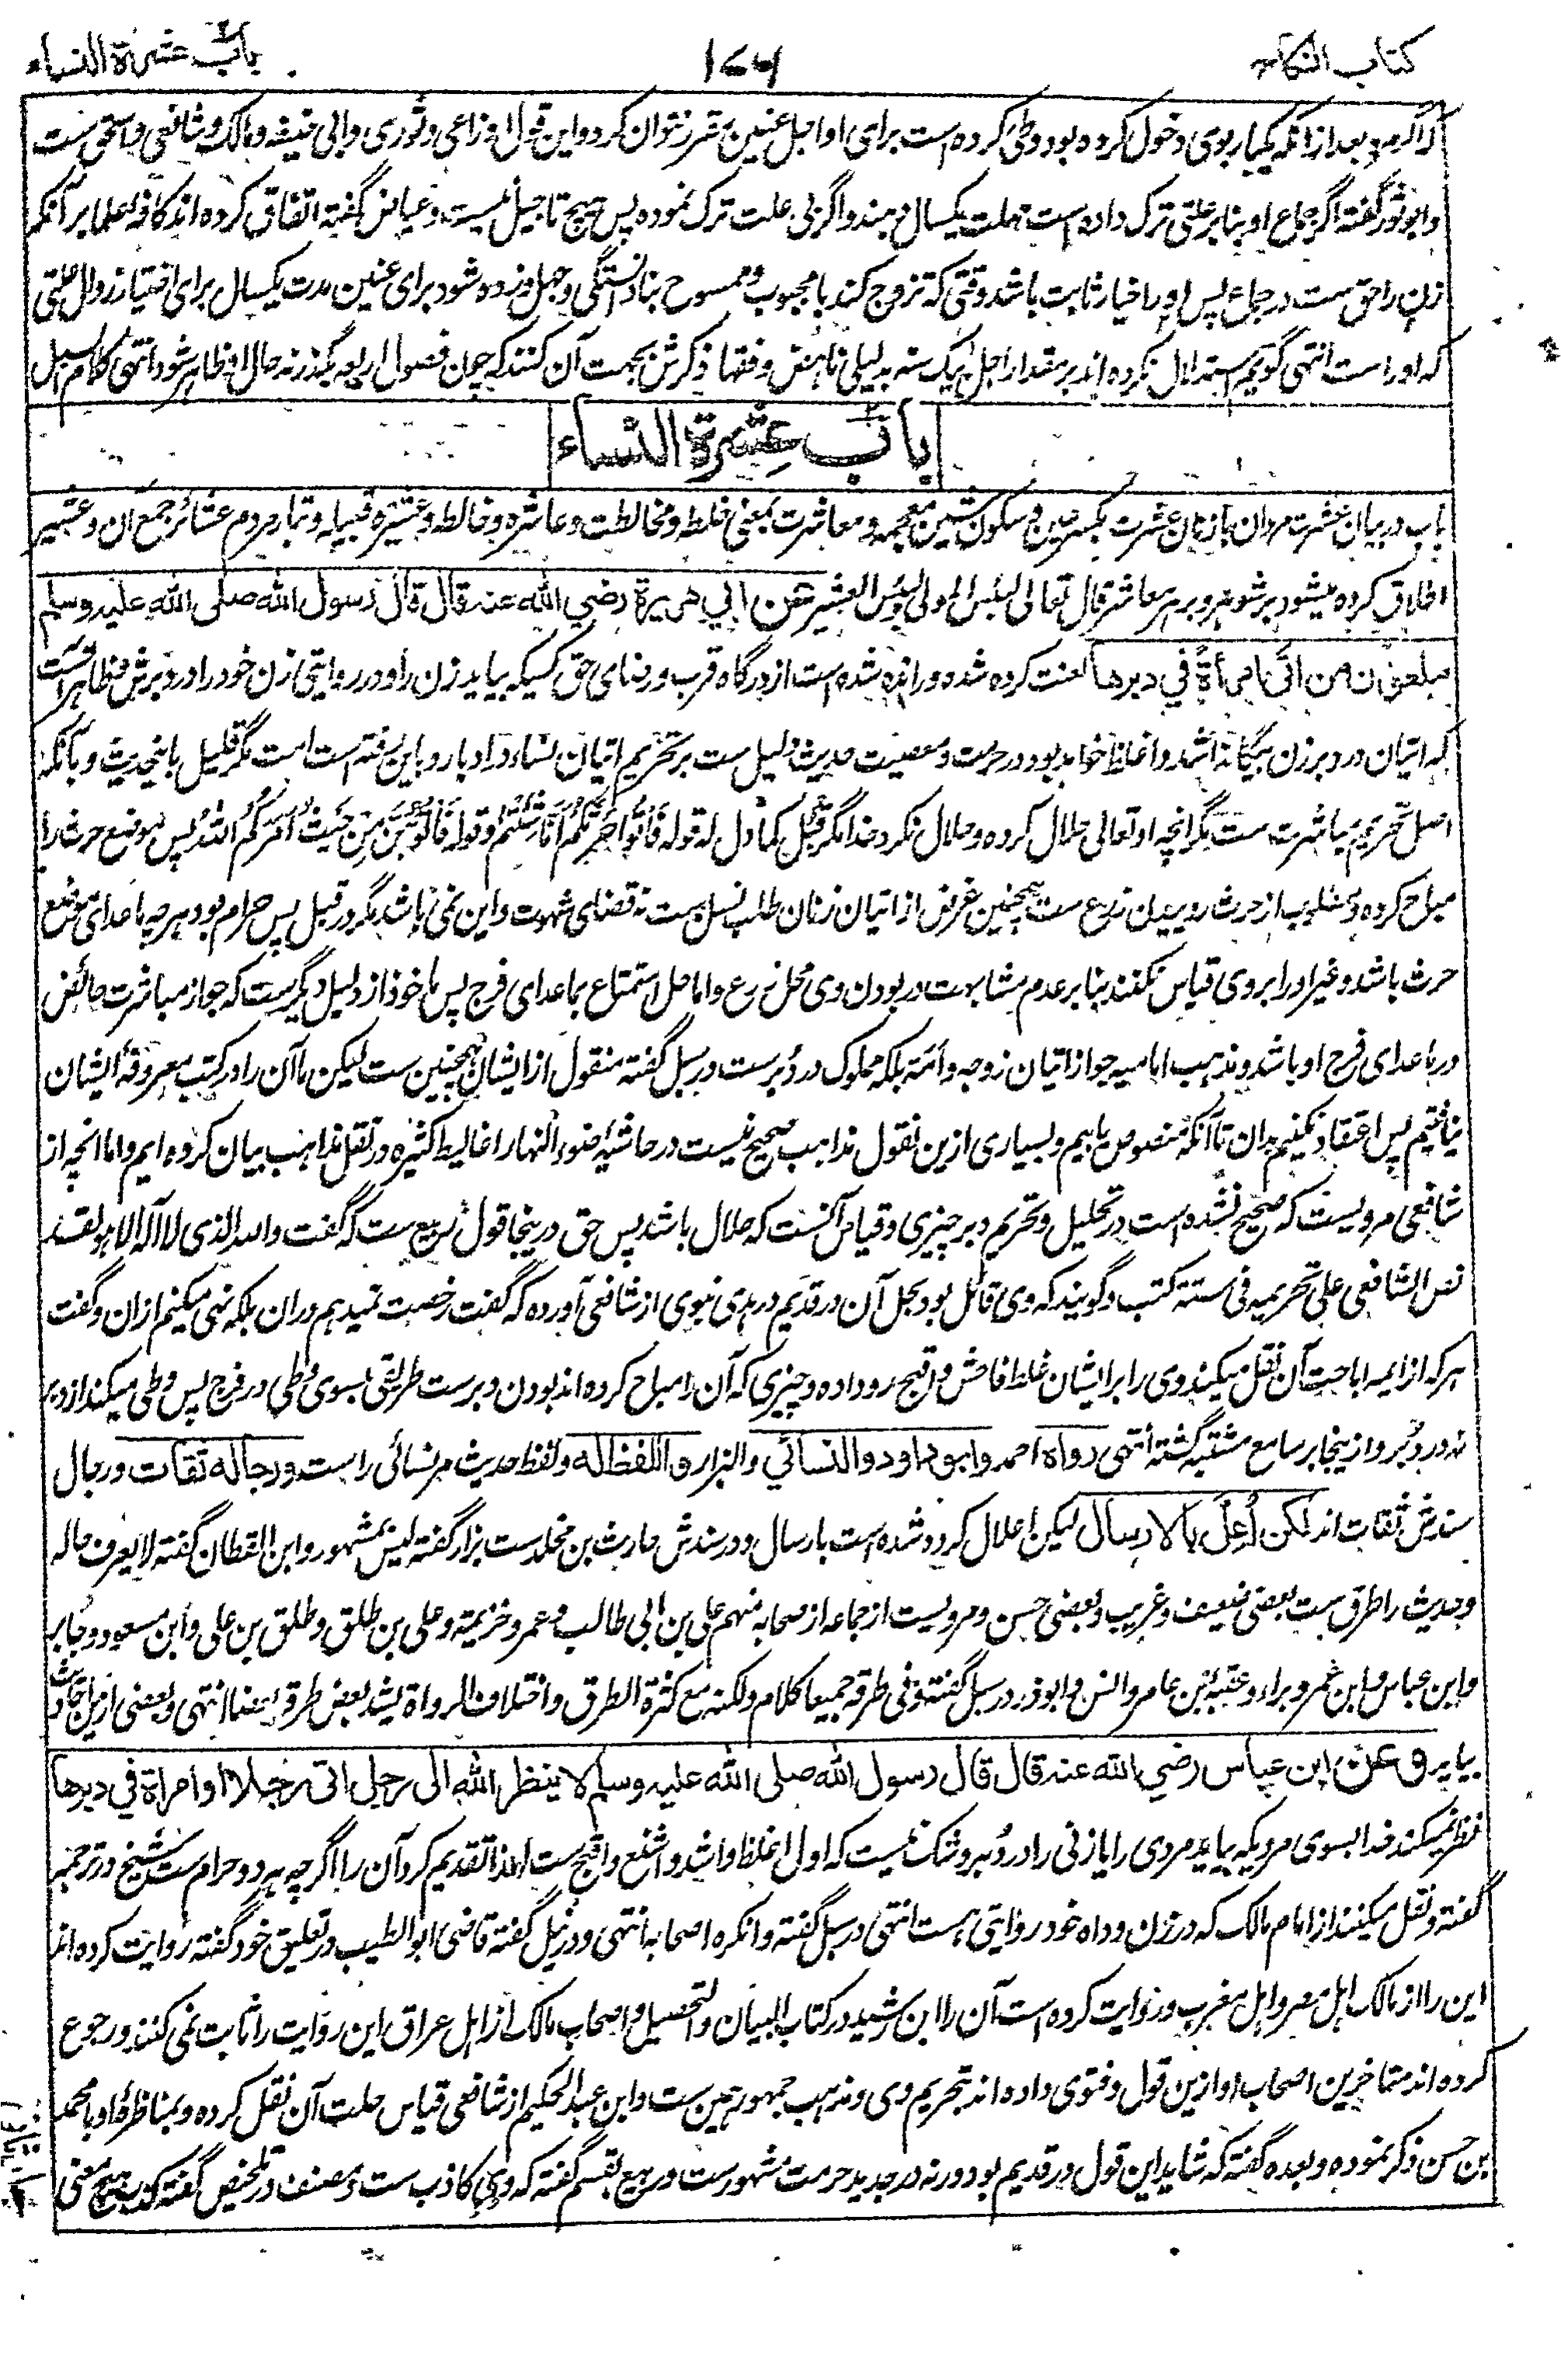 کتاب النکاح
۱۷۶
باب عشرة النساء
اگر مرد بعد ازانکه یکبار بوی دخول کرده بود و وطی کرده است برای او اجل عنین مقرر نتوان کرد و این قول اوزاعی و ثوری و ابی حنیفه و مالک و شافعی و اسحق ست
و ابو ثور گفته اگر جماع او بنا بر علتی ترک داده است مهلت یکسال دهند و اگر بی علت ترک نموده پس هیچ تاجیل نیست و عیاض گفته اتفاق کرده اند کافه علما بر آنکه
زن را حق ست در جماع پس او را خیار ثابت باشد وقتی که تزوج کند با مجبوب و ممسوح بنادانستگی و جهل و زده شود برای عنین مدت یکسال برای اختیار زوال علتی
که او راست انتهی گویم استدلال نکرده اند بر مقدار اجل بیک سنه بدلیلی ناهض و فقها ذکرش بجهت آن کنند که چون فصول اربعه بگذرند حال او ظاهر شود انتهی کلام السبل
باب عشرة النساء
باب در بیان عشرت مردان با زنان عشرت بکسر عین و سکون شین معجمه و معاشرت بمعنی خلط و مخالطت و عاشره و خالطه و عشیره قبیله و تبار مردم عشائر جمع آن و عشیر
اطلاق کرده میشود بر شوهر و بر هر معاشر قال تعالی لبئس المولی و لبئس العشیر عن ابي هريرة رضي الله عنه قال قال رسول الله صلى الله عليه وسلم
ملعون من اتى امرأة في دبرها لعنت کرده شده و رانده شده است از درگاه قرب و رضای حق کسیکه بیاید زن را و در روایتی زن خود را در دبرش و ظاهر آنست
که اتیان در دبر زن بیگانه اشد و اغلظ خواهد بود در حرمت و معصیت حدیث دلیل ست بر تحریم اتیان نساء در ادبار و باین رفته است امت مگر قلیل باینحدیث و بآنکه
اصل تحریم مباشرت ست مگر آنچه او تعالی حلال کرده و حلال نکرد خدا مگر قبل کما دل له قوله فَأْتُوا حَرْثَكُمْ أَنَّى شِئْتُمْ و قوله فَأْتُوهُنَّ مِنْ حَيْثُ أَمَرَكُمُ اللهُ پس موضع حرث را
مباح کرده و مطلوب از حرث روییدن زرع ست همچنین غرض از اتیان زنان طلب نسل ست نه قضای شهوت و این نمی باشد مگر در قبل پس حرام بود هر چه ماعدای موضع
حرث باشد و غیر او را بروی قیاس نکنند بنا بر عدم مشابهت در بودن وی محل زرع و اما حل استمتاع بماعدای فرج پس ماخوذ از دلیل دیگرست که جواز مباشرت حائض
در ماعدای فرج او باشد و مذهب امامیه جواز اتیان زوجه و أمة بلکه مملوک در دُبرست در سبل گفته منقول از ایشان همچنین ست لیکن ما آن را در کتب معروفهٔ ایشان
نیافتیم پس اعتقاد نکنیم بدان تا آنکه منصوص یابیم و بسیاری ازین نقول مذاهب صحیح نیست در حاشیه ضوء النهار اغالیط کثیره در نقل مذاهب بیان کرده ایم و اما آنچه از
شافعی مرویست که صحیح نشده است در تحلیل و تحریم دبر چیزی و قیاس آنست که حلال باشد پس حق درینجا قول ربیع ست که گفت والله الذی لا اله الا هو لقد
نص الشافعی علی تحریمه فی ستة کتب و گویند که وی قائل بود بحل آن در قدیم در هدی نبوی از شافعی آورده که گفت رخصت نمیدهم دران بلکه نهی میکنم ازان و گفت
هر که از ایمه اباحت آن نقل میکند وی را بر ایشان غلط فاحش و قبیح رو داده و چیزی که آن را مباح کرده اند بودن دبرست طریقی بسوی وطی در فرج پس وطی میکند از دبر
نه در دُبر و ازینجا بر سامع مشتبه گشته انتهی رواه احمد وابو داود والنسائي والبزار واللفظ له و لفظ حدیث مر نسائی راست ورجاله ثقات و رجال
سندش ثقات اند لكن اُعِلّ بالارسال لیکن اعلال کرده شده است بارسال و در سندش حارث بن مخلدست بزار گفته لیس بمشهور و ابن القطان گفته لا یعرف حاله
و حدیث را طرق ست بعضی ضعیف و غریب و بعضی حسن و مرویست از جماعه از صحابه منهم علی بن ابی طالب و عمر و خزیمه و علی بن طلق و طلق بن علی و ابن مسعود و جابر
و ابن عباس و ابن عمرو و براء و عقبه بن عامر و انس و ابو ذر در سبل گفته و فی طرقه جمیعا کلام ولکنه مع کثرة الطرق و اختلاف الرواة یشد بعض طرقه بعضا انتهی و بعضی ازین احادیث
بیاید وعن ابن عباس رضي الله عنه قال قال رسول الله صلى الله عليه وسلم لا ينظر الله الى رجل اتى رجلا او امرأة في دبرها
نظر نمیکند خدا بسوی مردیکه بیاید مردی را یا زنی را در دُبر و شک نیست که اول اغلظ و اشد و اشنع و اقبح ست لهذا تقدیم کرد آن را اگر چه هر دو حرام ست شیخ در ترجمه
گفته و نقل میکنند از امام مالک که در زن و داه خود روایتی هست انتهی در سبل گفته و انکره اصحابه انتهی و در نیل گفته قاضی ابو الطیب در تعلیق خود گفته روایت کرده اند
این را از مالک اهل مصر و اهل مغرب و روایت کرده است آن را ابن رشید در کتاب البیان والتحصیل و اصحاب مالک از اهل عراق این روایت را ثابت نمی کنند و رجوع
کرده اند متاخرین اصحاب او ازین قول و فتوی داده اند بتحریم وی و مذهب جمهور همین ست و ابن عبد الحکیم از شافعی قیاس حلت آن نقل کرده و بمناظرهٔ او با محمد
بن حسن ذکر نموده و بعده گفته که شاید این قول در قدیم بود ورنه در جدید حرمت مشهورست و ربیع بقسم گفته که وی کاذب ست و مصنف در تلخیص گفته که تکذیب هیچ معنی